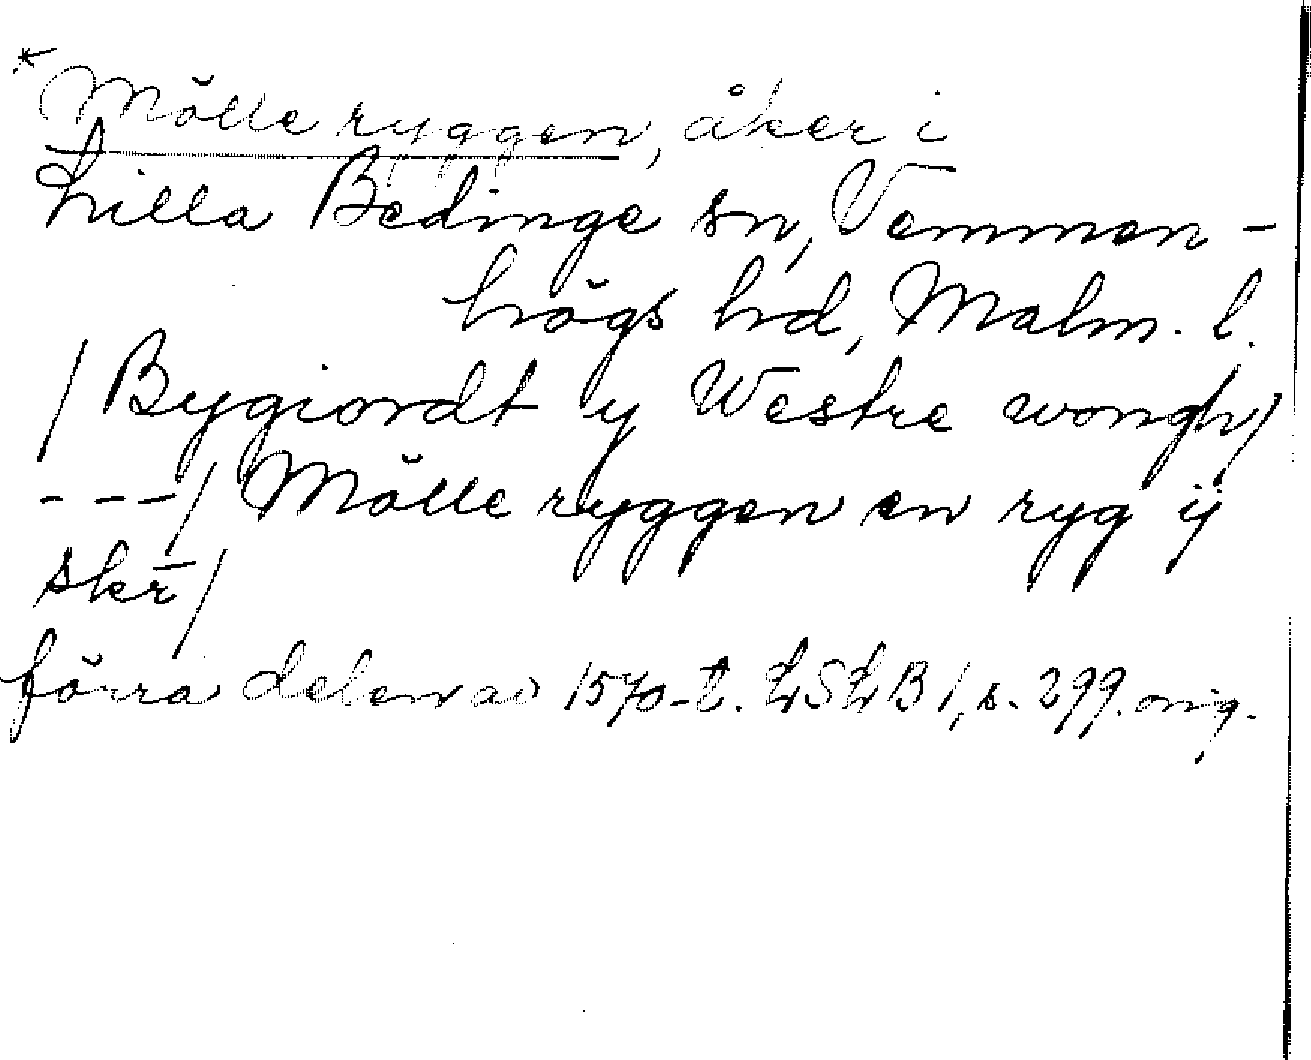 * Mölle ryggen, åker i
Lilla Bedinge sn, Vemmen-
högs hd, Malm. l.
/ Bygiordt y Westre wongh /
---/ Mölle ryggen en ryg ij
skr /
förra delen av 1570-t. LSLB 1, s. 299. orig.